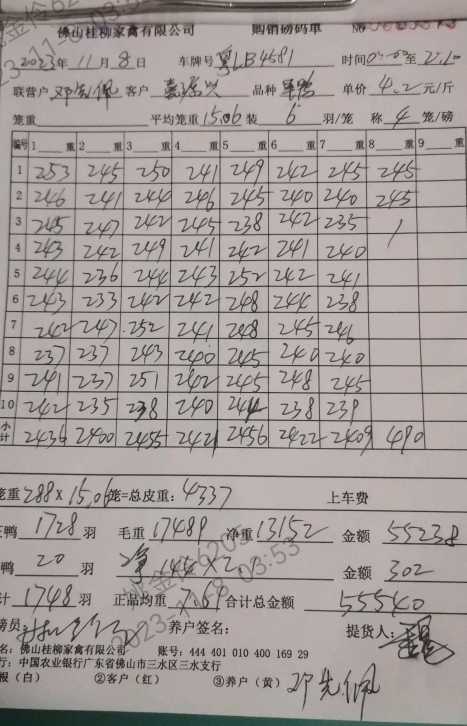 佛山桂柳家禽有限公司 购销磅码单 №
2023年11月8日 车牌号粤LB4581 时间 至
联营户邓先佩 客户 品种 单价4.2元/斤
笼重 平均笼重15.06装6羽/笼 称4笼/磅
编号 1 重 2 重 3 重 4 重 5 重 6 重 7 重 8 重 9 重
1 253 245 250 241 249 242 245 245
2 246 241 244 246 245 240 240 245
3 245 247 242 245 238 242 235 /
4 243 242 249 241 242 241 240
5 244 236 244 243 252 242 241
6 243 233 242 242 248 244 238
7 242 247 252 241 248 245 246
8 237 237 243 240 245 240 240
9 241 237 251 242 245 248 245
10 242 235 238 240 244 238 239
小计 2436 2400 2455 2421 2456 2422 2409 490
笼重288×15.06笼=总皮重:4337 上车费
鸭1728羽 毛重17489 净重13152 金额55238
鸭20羽 净 ×2 金额302
计1748羽 正品均重7.61 合计总金额55540
磅员: 养户签名: 提货人:
名:佛山桂柳家禽有限公司 账号:444 401 010 400 169 29
行:中国农业银行广东省佛山市三水区三水支行
根(白) ②客户(红) ③养户(黄) 邓先佩
2023-11-8 03:53